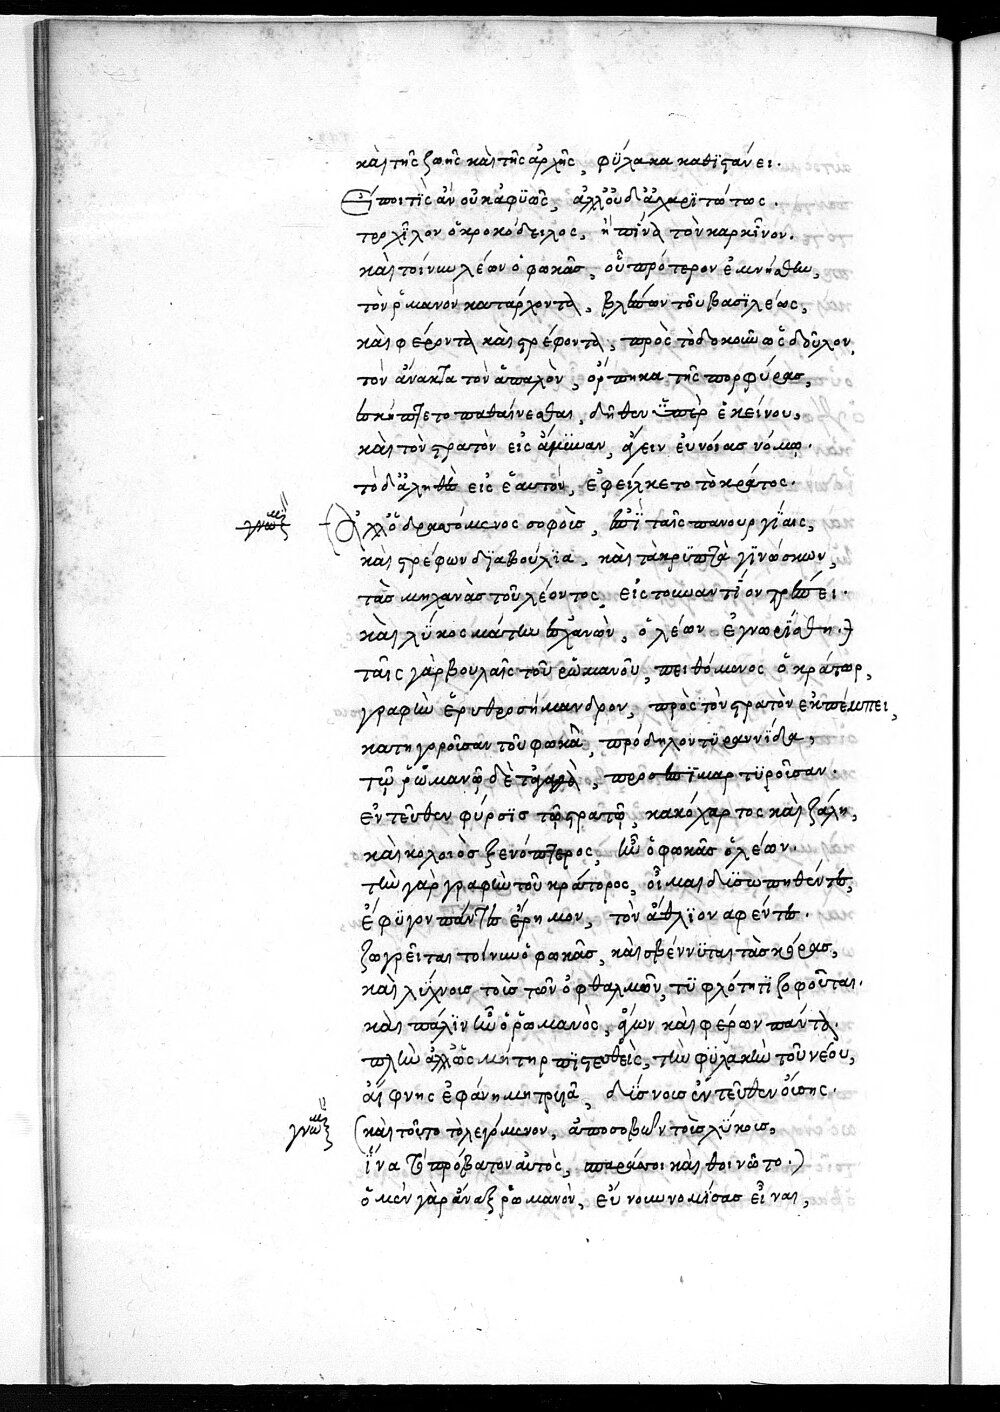 καὶ τῆς ζωῆς καὶ τῆς ἀρχῆς, φύλακα καθιστάνει.
Εἴποι τὶς ἂν οὐκ ἀφυῶς, ἀλλ' οὐδ' ἀχαρίτωτως.
τροχῖλον ὁ κροκόδειλος, ἢ πίνα τὸν καρκῖνον.
καὶ τοίνυν λέων ὁ φωκᾶς, οὗ πρότερον ἐμνήσθην,
τὸν ῥωμανὸν κατάρχοντα, βλέπων τοῦ βασιλέως,
καὶ φέροντα καὶ στρέφοντα, πρὸς τὸ δοκοῦν ὡς δῆλον,
τὸν ἄνακτα τὸν ἁπαλὸν, ὅρπηκα τῆς πορφύρας,
ἐσκήπτετο παθαίνεσθαι, δῆθεν ὑπὲρ ἐκείνου,
καὶ τὸν στρατὸν εἰς ἄμυναν, ἄγειν εὐνοίας νόμῳ.
τὸ δ' ἀληθὲς εἰς ἑαυτὸν, ἐφείλκετο τὸ κράτος.
γνωμϊ Ἀλλ' ὁ δραττόμενος σοφοὺς, ἐπὶ ταῖς πανουργίαις,
καὶ στρέφων διαβούλια, καὶ τὰ κρυπτὰ γινώσκων,
τὰς μηχανὰς τοῦ λέοντος, εἰς τοὐναντίον τρέπει.
καὶ λύκος μάτην χανὼν, ὁ λέων ἐγνωρίσθη.
ταῖς γὰρ βουλαῖς τοῦ ῥωμανοῦ, πειθόμενος ὁ κράτωρ,
γραφὴν ἐρυθροσήμανδρον, πρὸς τὸν στρατὸν ἐκπέμπει,
κατηγοροῦσαν τοῦ φωκᾶ, πρόδηλον τυραννίδα,
τῷ ῥωμανῷ δὲ τἀγαθὰ, προσεπιμαρτυροῦσαν.
ἐντεῦθεν φύρσις τῷ στρατῷ, κακόχαρτος καὶ ζάλη,
καὶ κολοιὸς ξενόπτερος, ἦν ὁ φωκᾶς ὁ λέων.
τὴν γὰρ γραφὴν τοῦ κράτορος, οἶμαι δυσωπηθέντες,
ἔφυγον πάντες ἔρημον, τὸν ἄθλιον ἀφέντες.
ζωγρεῖται τοίνυν ὁ φωκᾶς, καὶ σβέννυται τὰς κόρας,
καὶ λύχνοις τοῖς τῶν ὀφθαλμῶν, τυφλότητι ζοφοῦται.
καὶ πάλιν ἦν ὁ ῥωμανὸς, ἄγων καὶ φέρων πάντα.
πλὴν ἀλλ' ὡς μήτηρ πιστευθεὶς, τὴν φυλακὴν τοῦ νέου,
αἴφνης ἐφάνη μητρυιὰ, δύσνους ἐντεῦθεν οἴσης.
γνωμϊ (καὶ τοῦτο τὸ λεγόμενον, ἀποσοβῶν τοὺς λύκους,
ἵνα τὸ πρόβατον αὐτὸς, σπαράττοι καὶ θοινῶτο.)
ὁ μὲν γὰρ ἄναξ ῥωμανὸν, εὔνουν νομίσας εἶναι,